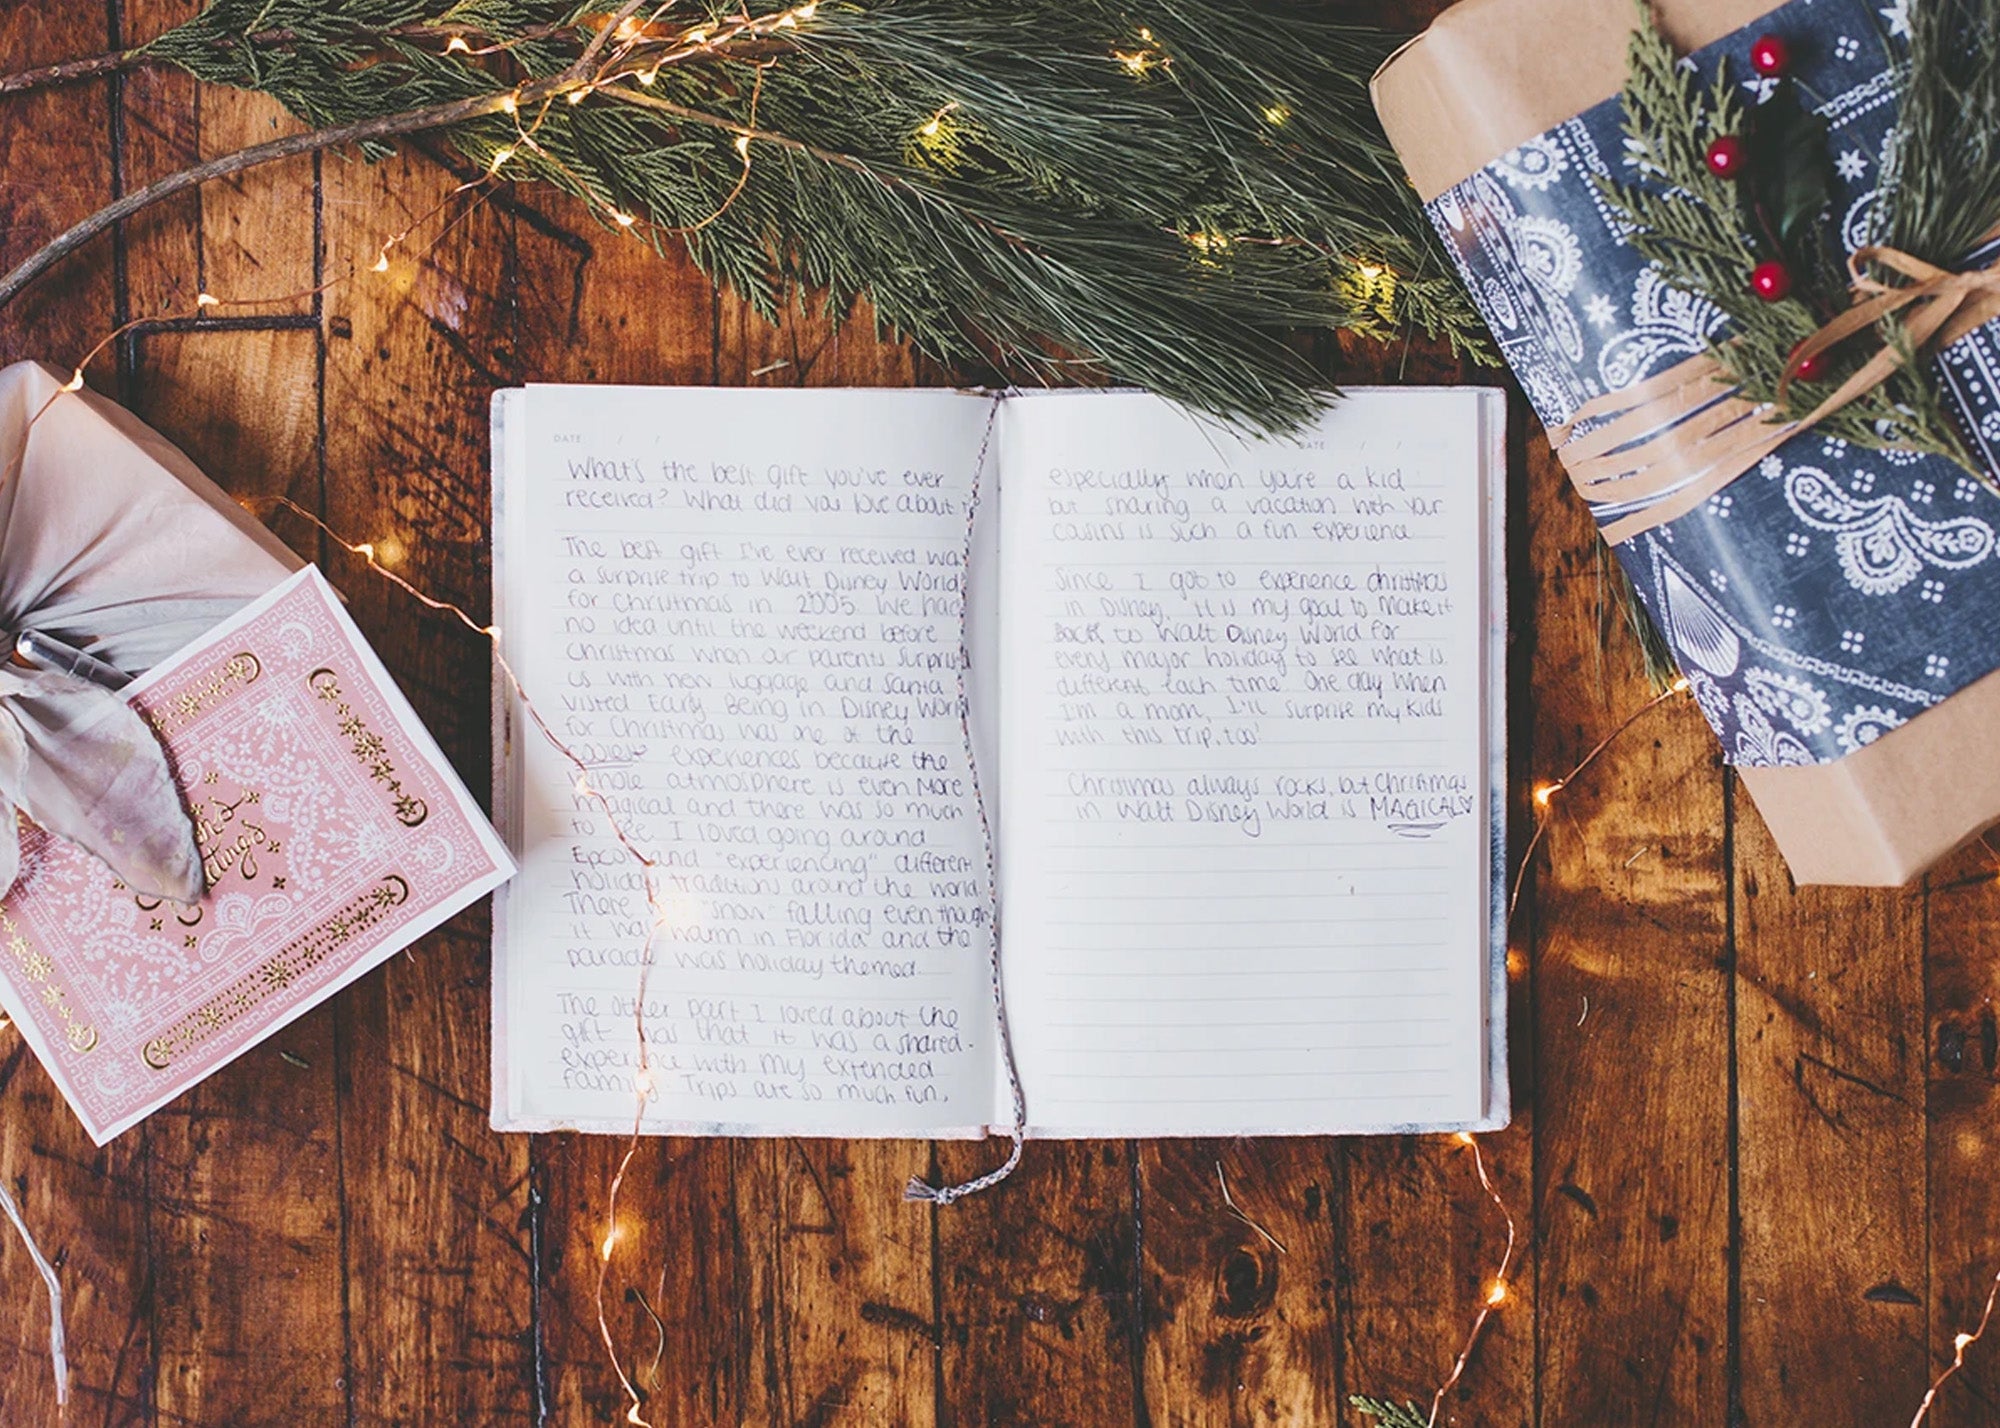 DATE / /
What's the best gift you've ever
received? What did you love about
The best gift I've ever received was
a surprise trip to Walt Disney World
for Christmas in 2005. We had
no idea until the weekend before
Christmas when our parents surprised
us with new luggage and Santa
visited Early. Being in Disney World
for Christmas was one of the
coolest experiences because the
whole atmosphere is even more
magical and there was so much
to see. I loved going around
Epcot and "experiencing" different
holiday traditions around the world.
There was "snow" falling even though
it was warm in Florida and the
parade was holiday themed.
The other part I loved about the
gift was that it was a shared
experience with my extended
family. Trips are so much fun,
DATE / /
especially when you're a kid
but sharing a vacation with your
cousins is such a fun experience
Since I got to experience christmas
in Disney, it is my goal to make it
back to Walt Disney World for
every major holiday to see what is
different each time. One day when
I'm a mom, I'll surprise my kids
with this trip, too!
Christmas always rocks, but Christmas
in Walt Disney World is MAGICAL♡